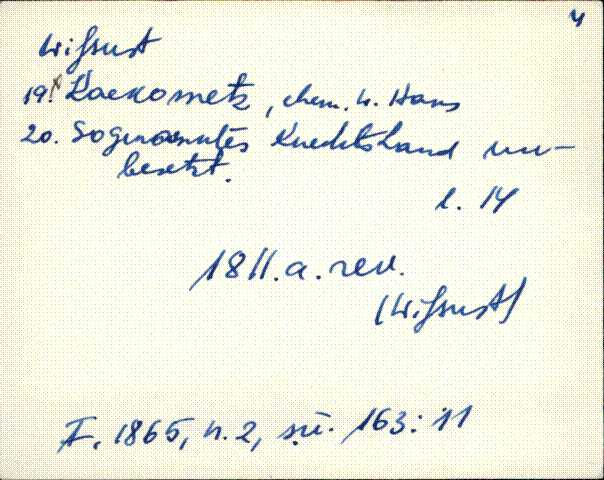 4
Wissust
19. Kaekometz, chem. W. Haus
20. Sogenanntes Knechtsland un-
besetzt.
l. 14
1811.a. rev.
(Wissust)
F. 1865, n. 2, sü. 163:11